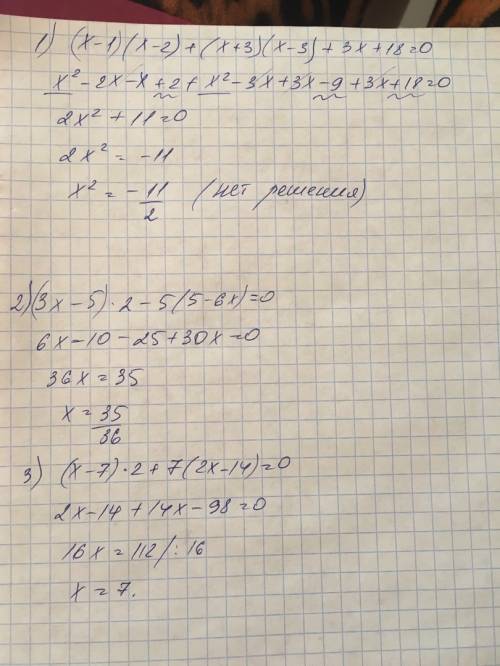 1) (x-1)(x-2)+(x+3)(x-3)+3x+18=0
x²-2x-x+2+x²-3x+3x-9+3x+18=0
2x²+11=0
2x²=-11
x²=-11/2 (нет решения)
2) (3x-5)·2-5(5-6x)=0
6x-10-25+30x=0
36x=35
x=35/36
3) (x-7)·2+7(2x-14)=0
2x-14+14x-98=0
16x=112/:16
x=7.